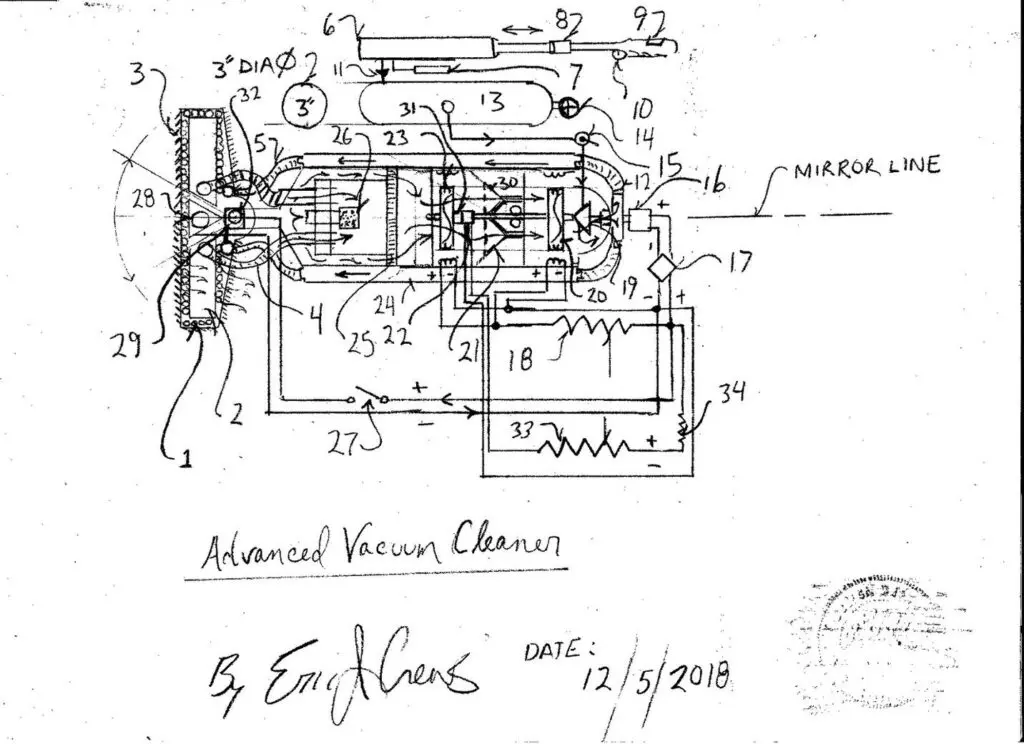 6 8 9
3 3" DIA Ø 2 11 7
32 3" 31 13 10
14
5 26 23 15
MIRROR LINE
30 12 16
+
28
17
+ + - 19 - +
29 4 24 20
25 22 21 18
+ 34
2 - 33 +
27 -
1
Advanced Vacuum Cleaner
DATE:
By
12/5/2018